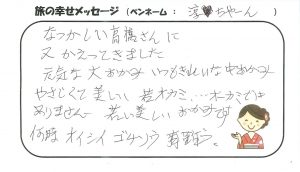 旅の幸せメッセージ （ペンネーム： 涼♥ちゃーん ）
なつかしい高橋さんに
又かえってきました
元気な大おかみ いつもきれいな中おかみ
やさしくて美しい 若オカミ…オーカミでは
ありません 若い美しい おかみです
何時 オイシイ ゴチソウ 有難う。